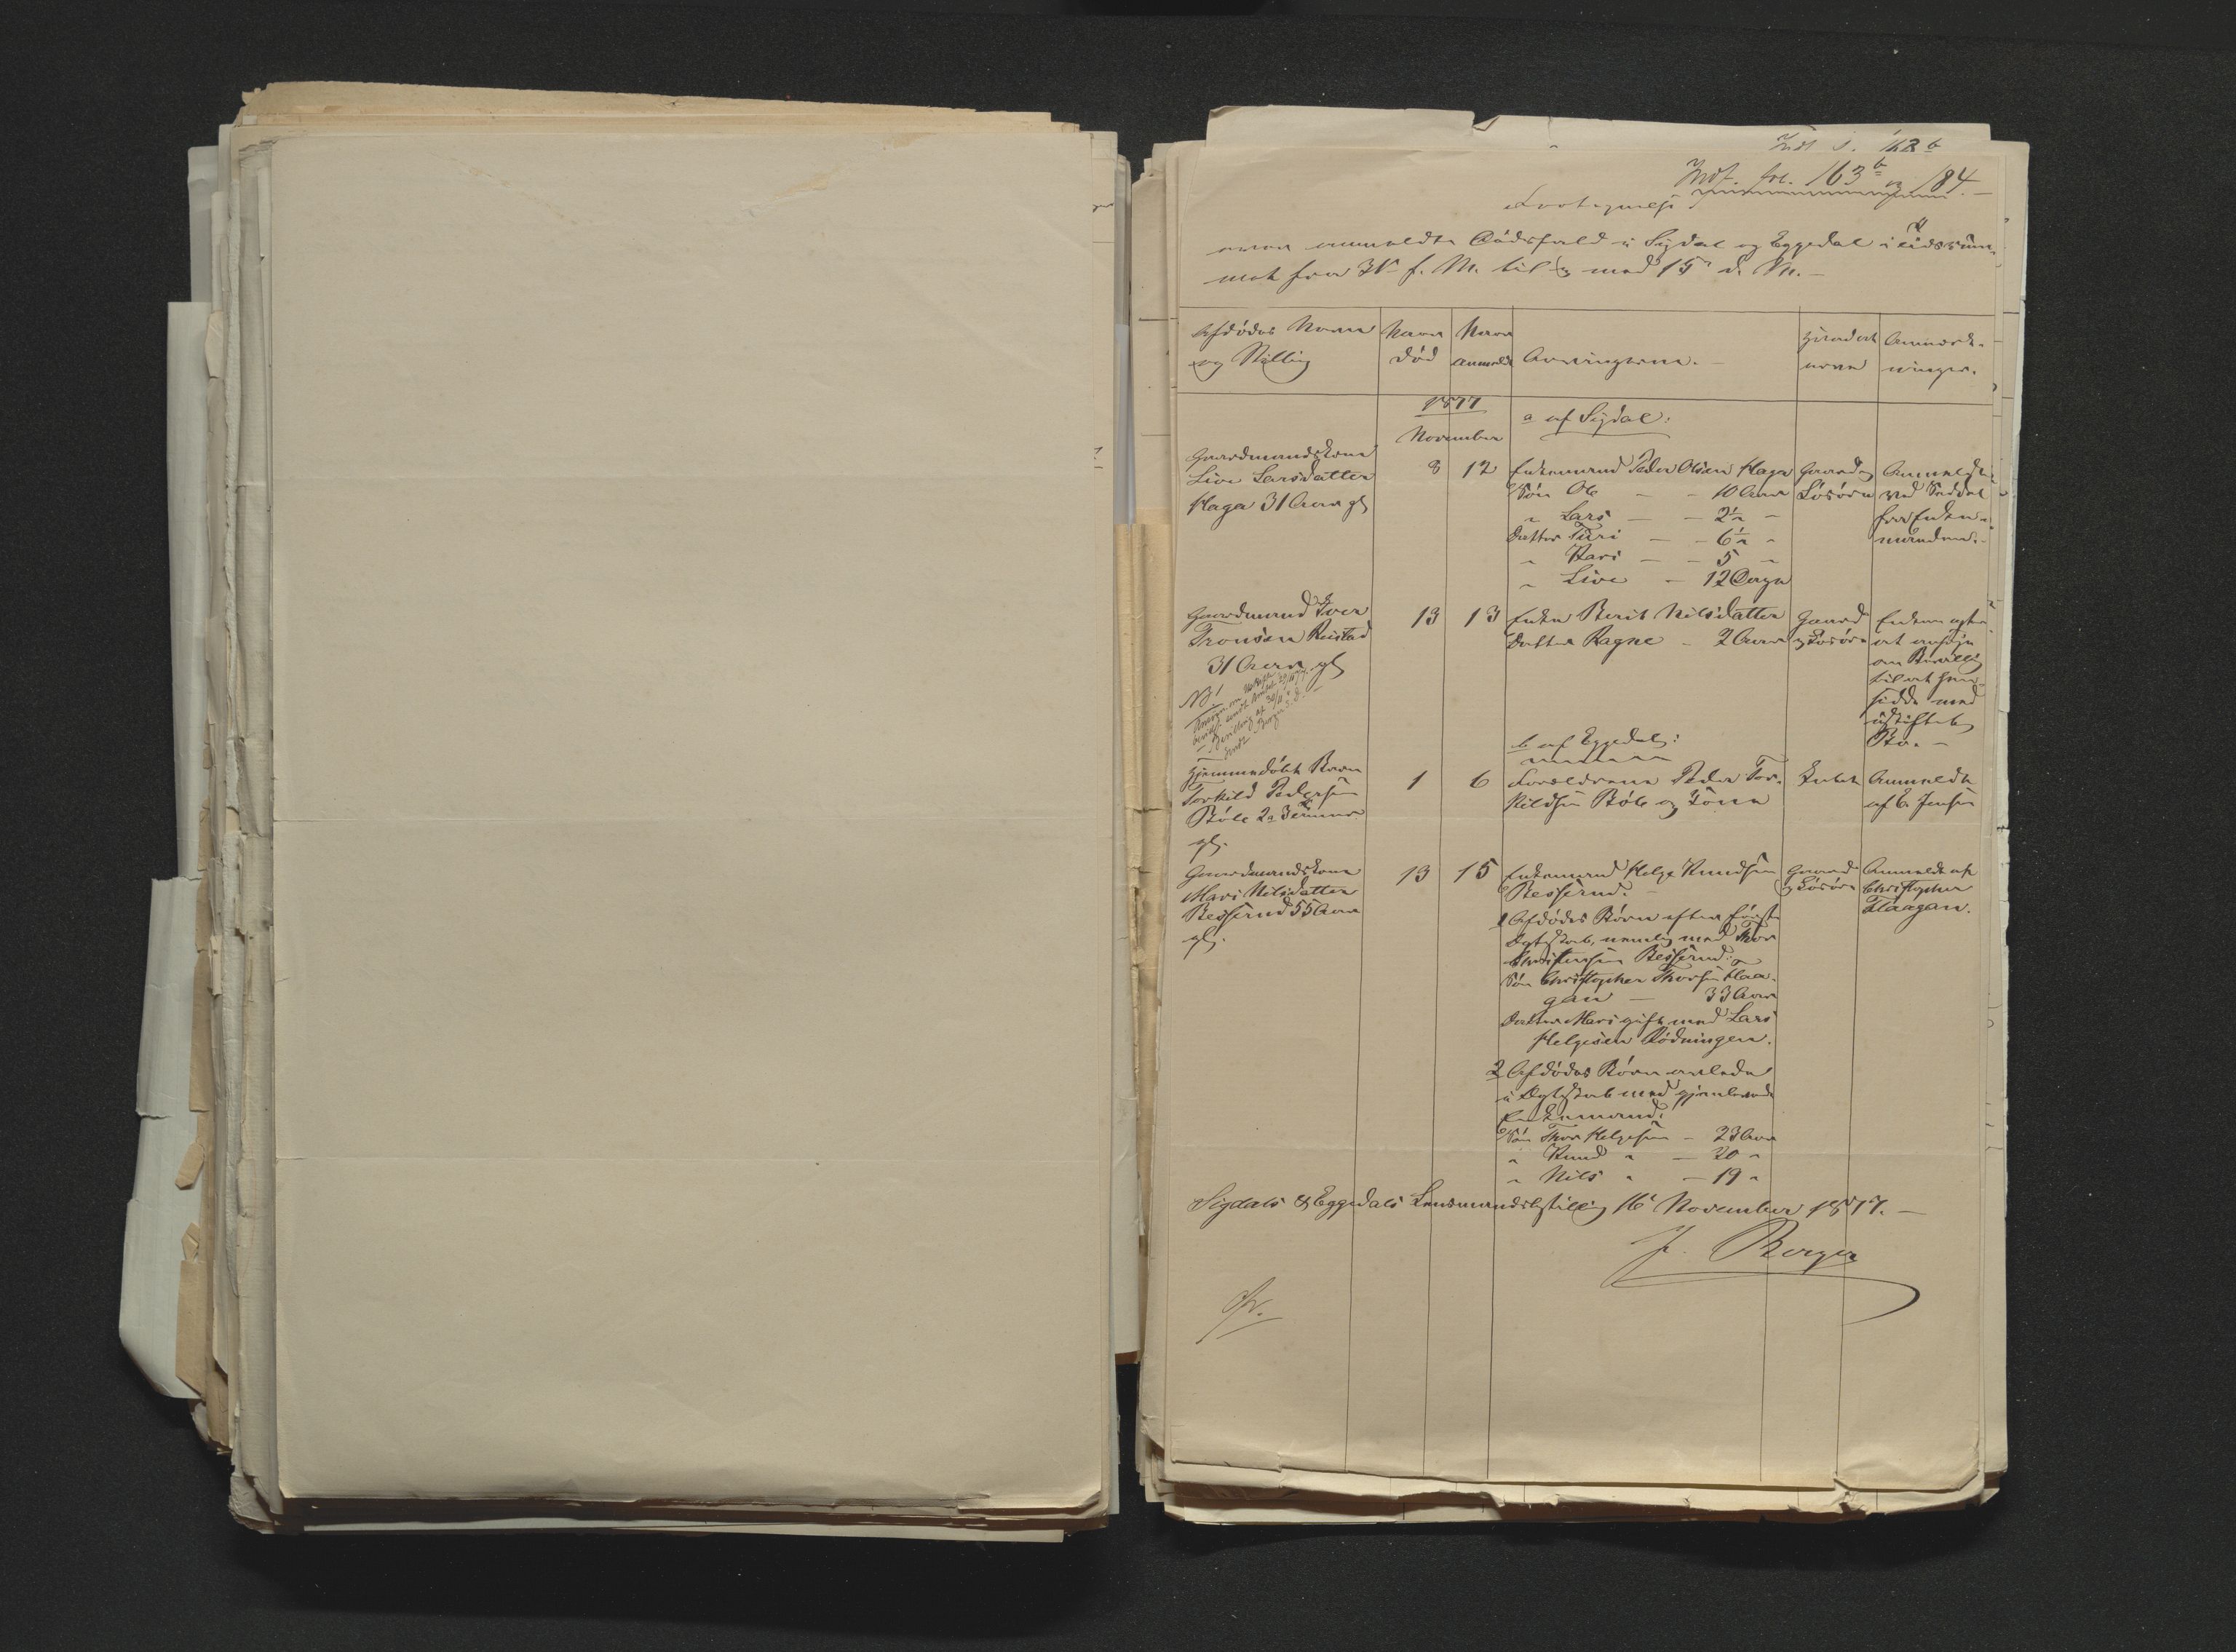 Indf. fol. 163 b og 184.
Fortegnelse
over anmeldte Dödsfald i Sigdal og Eggedal i Tidsrum-
met fra 31 f. M. til og med 15 d. M.
Afdödes Navn
og Stilling
Naar
död
Naar
anmeldt
Arvingerne.
Hvad at
arve
Anmærk-
ninger.
1877
November
a af Sigdal:
Gaardmandskone
Live Larsdatter
Haga 31 Aar gl
8 12
Enkemand Peder Olsen Haga
Sön Ole — 10 Aar
" Lars — 2½ "
Datter Turi — 6½ "
" Kari — 5 "
" Live — 12 Dage
Gaard og
Lösöre
Anmeldt
ved Seddel
fra Enke-
manden.
Gaardmand Iver
Tronsen Rustad
31 Aar gl
13 13
Enke Berit Nilsdatter
Datter Ragne — 2 Aar
Gaard
og Lösöre
Enken agter
at ansöge
om Bevilling
til at hen-
sidde med
uskiftet
Bo. —
NB!
b af Eggedal:
Hjemmedöbt Barn
Torkild Pedersen
Böle 2 a 3 Timer
gl.
1 6
Forældrene Peder Tor-
kildsen Böle og Kone
Intet
Anmeldt
af E. Jensen
Gaardmandskone
Mari Nilsdatter
Besserud 55 Aar
gl.
13 15
Enkemand Helge Knudsen
Besserud. —
1 Afdödes Börn efter först
Ægteskab, nemlig med Thor
Christensen Besserud:
Sön Christopher Thorsen Flaa-
gan — 33 Aar
Datter Mari gift med Lars
Helgesen Rödningen.
2 Afdödes Börn avlede
i Ægteskab med gjenlevende
Enkemand:
Sön Thor Helgesen — 23 Aar
" Knud " — 20 "
" Nils " — 19 "
Gaard
og Lösöre
Anmeldt af
Christopher
Flaagan.
Sigdals & Eggedals Lensmandsbestilling 16 November 1877. —
J. Borger